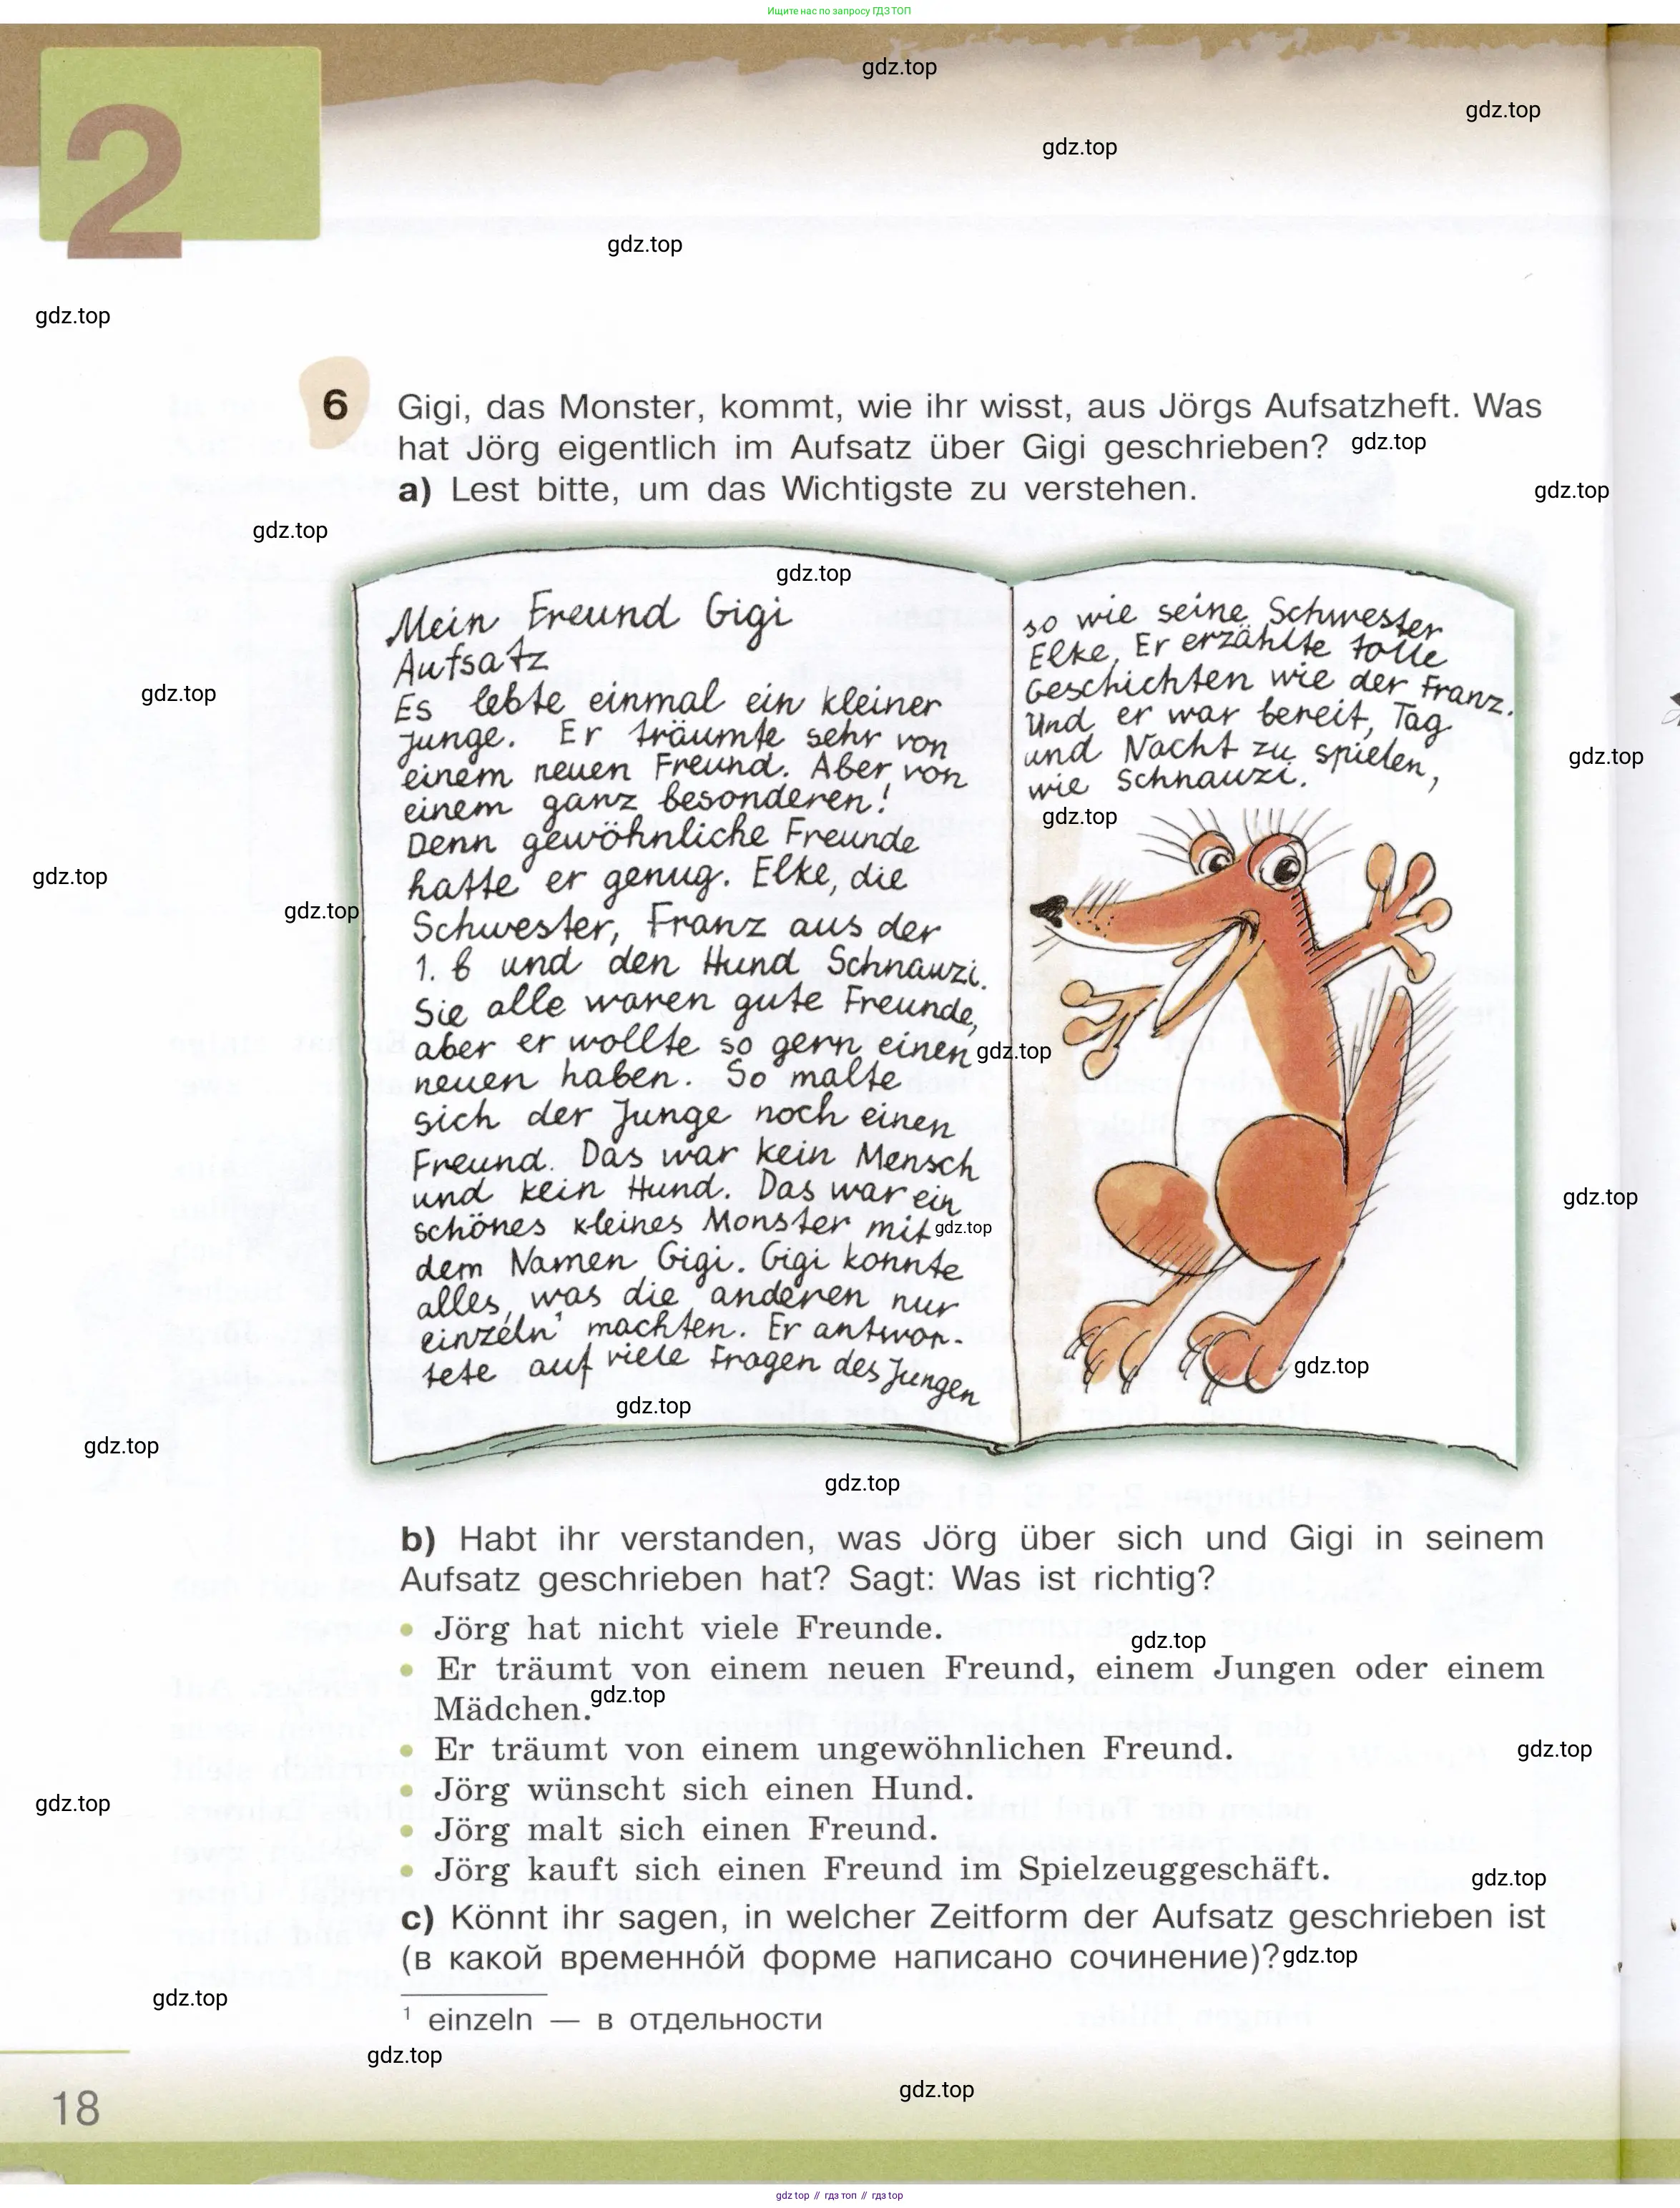 Ищите нас по запросу ГДЗ ТОП
gdz.top
gdz.top
gdz.top
2
gdz.top
gdz.top
6
Gigi, das Monster, kommt, wie ihr wisst, aus Jörgs Aufsatzheft. Was
hat Jörg eigentlich im Aufsatz über Gigi geschrieben?
gdz.top
a) Lest bitte, um das Wichtigste zu verstehen.
gdz.top
gdz.top
gdz.top
Mein Freund Gigi
Aufsatz
Es lebte einmal ein kleiner
Junge. Er träumte sehr von
einem neuen Freund. Aber von
einem ganz besonderen!
Denn gewöhnliche Freunde
hatte er genug. Elke, die
Schwester, Franz aus der
1. b und den Hund Schnauzi.
Sie alle waren gute Freunde,
aber er wollte so gern einen
neuen haben. So malte
sich der Junge noch einen
Freund. Das war kein Mensch
und kein Hund. Das war ein
schönes kleines Monster mit
dem Namen Gigi. Gigi konnte
alles, was die anderen nur
einzeln¹ machten. Er antwor-
tete auf viele Fragen des Jungen
so wie seine Schwester
Elke. Er erzählte tolle
Geschichten wie der Franz.
Und er war bereit, Tag
und Nacht zu spielen,
wie Schnauzi.
gdz.top
gdz.top
gdz.top
gdz.top
gdz.top
gdz.top
gdz.top
gdz.top
gdz.top
gdz.top
gdz.top
gdz.top
b) Habt ihr verstanden, was Jörg über sich und Gigi in seinem
Aufsatz geschrieben hat? Sagt: Was ist richtig?
• Jörg hat nicht viele Freunde.
gdz.top
• Er träumt von einem neuen Freund, einem Jungen oder einem
Mädchen.
gdz.top
• Er träumt von einem ungewöhnlichen Freund.
gdz.top
• Jörg wünscht sich einen Hund.
gdz.top
• Jörg malt sich einen Freund.
• Jörg kauft sich einen Freund im Spielzeuggeschäft.
gdz.top
c) Könnt ihr sagen, in welcher Zeitform der Aufsatz geschrieben ist
(в какой временно́й форме написано сочинение)?
gdz.top
gdz.top
¹ einzeln — в отдельности
gdz.top
gdz.top
18
gdz top // гдз топ // gdz top